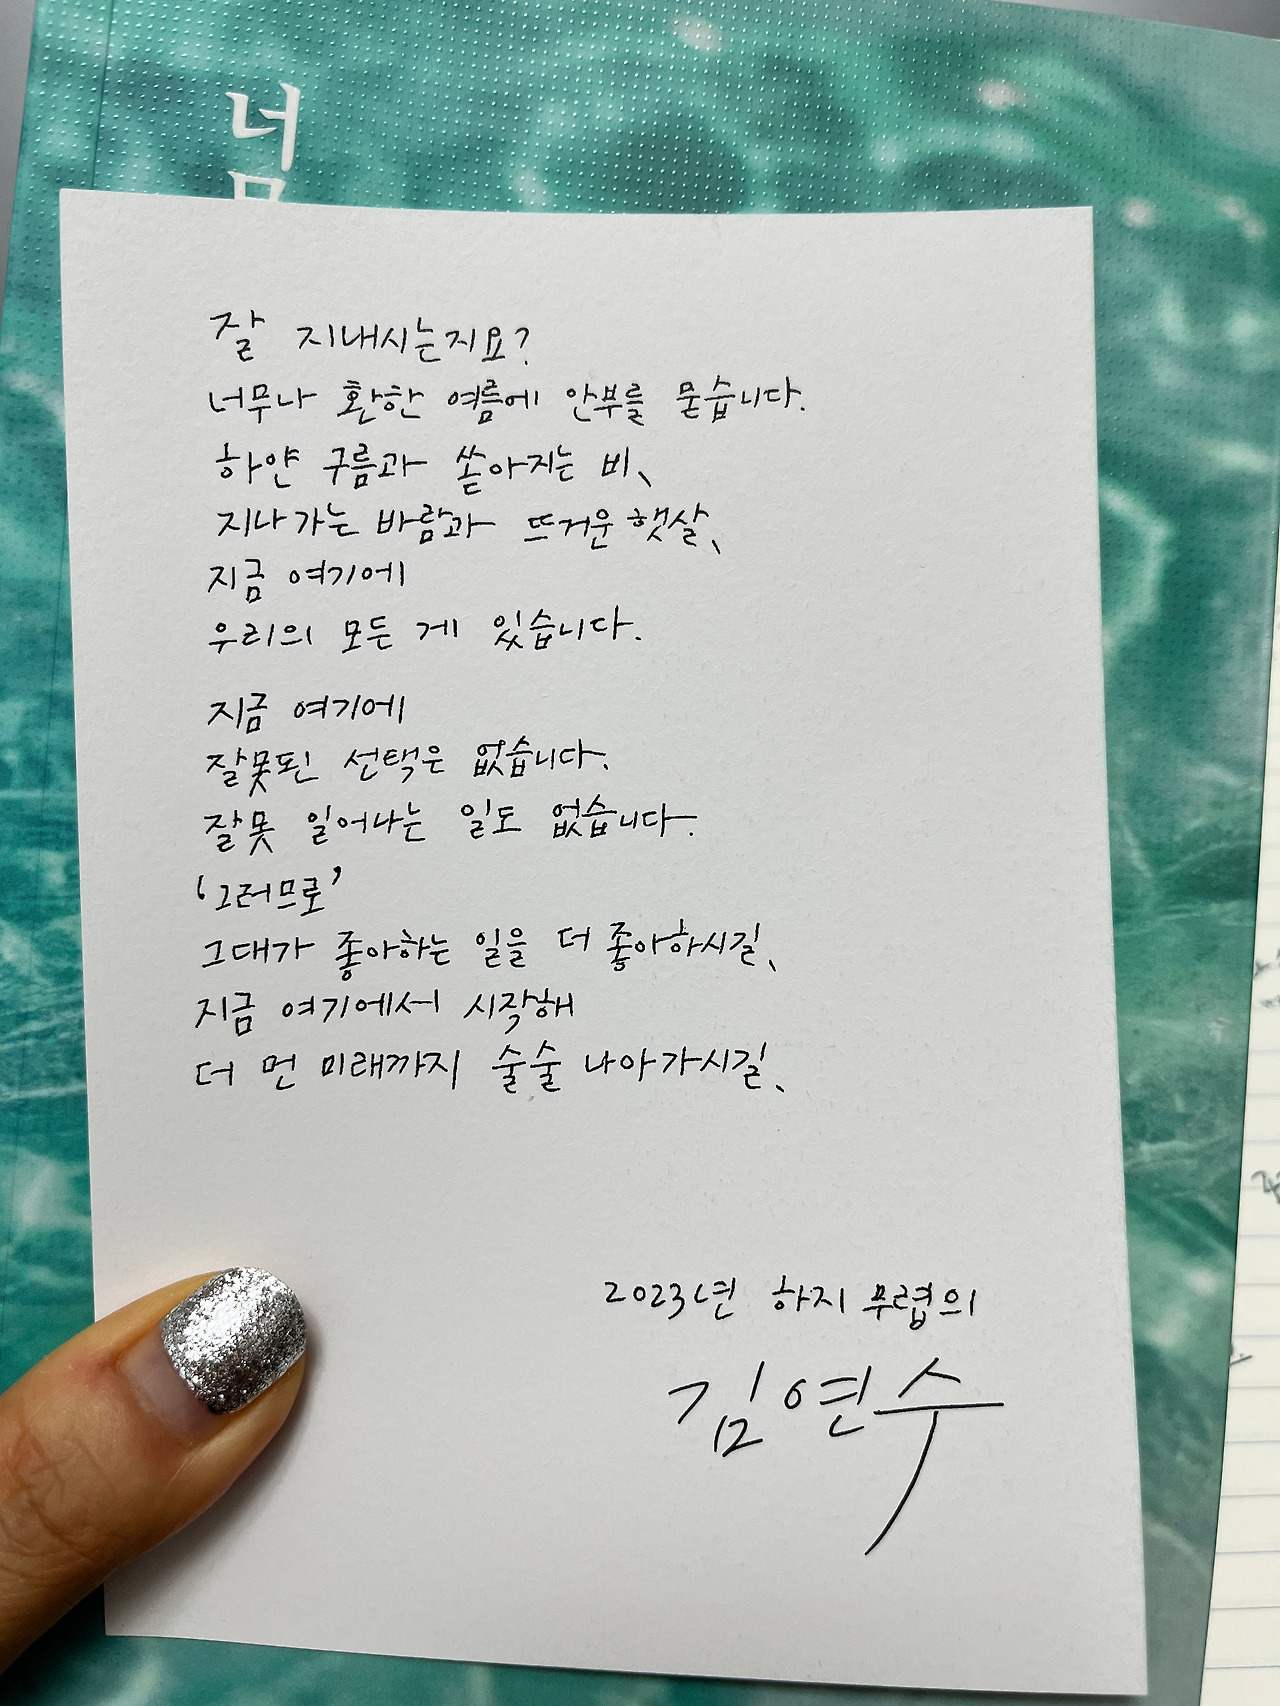 너
잘 지내시는지요?
너무나 환한 여름에 안부를 묻습니다.
하얀 구름과 쏟아지는 비,
지나가는 바람과 뜨거운 햇살,
지금 여기에
우리의 모든 게 있습니다.
지금 여기에
잘못된 선택은 없습니다.
잘못 일어나는 일도 없습니다.
‘그러므로’
그대가 좋아하는 일을 더 좋아하시길,
지금 여기에서 시작해
더 먼 미래까지 술술 나아가시길,
2023년 하지 무렵의
김연수